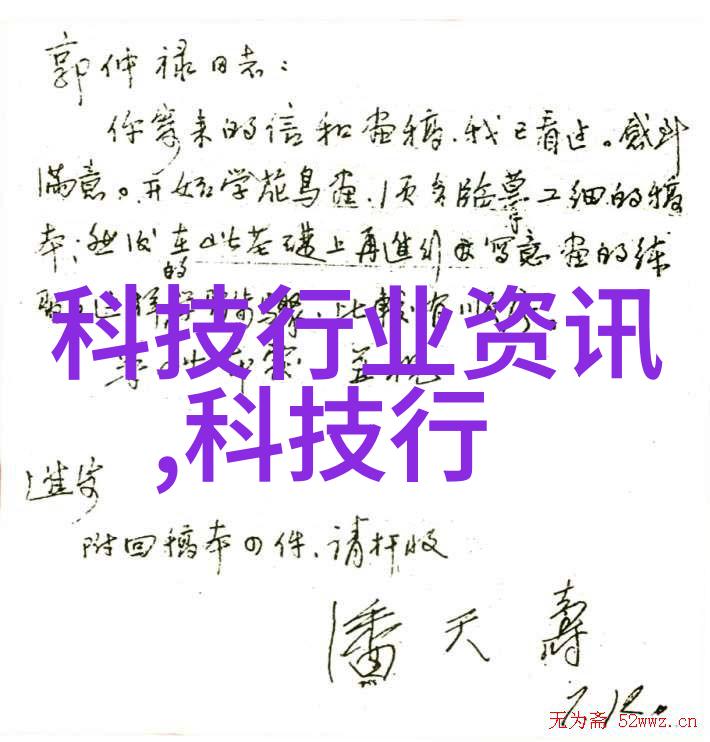 郭仲禄同志：
你寄来的信和画稿,我已看过。感到
满意。开始学花鸟画,须多临摹工细的稿
本；然后在此基礎上再進行写意画的练
的
科技行业资讯
,科技行
進步
附回稿本四件、请检收
潘天壽
7.12.
无为斋 52wwz.cn